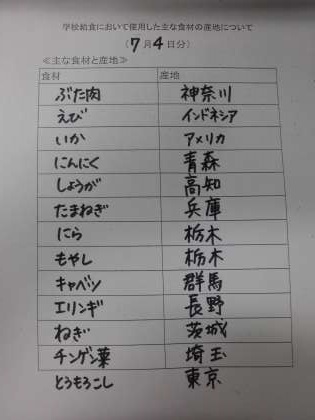 学校給食において使用した主な食材の産地について
(7月4日分)
≪主な食材と産地≫
食材 産地
ぶた肉 神奈川
えび インドネシア
いか アメリカ
にんにく 青森
しょうが 高知
たまねぎ 兵庫
にら 栃木
もやし 栃木
キャベツ 群馬
エリンギ 長野
ねぎ 茨城
チンゲン菜 埼玉
とうもろこし 東京